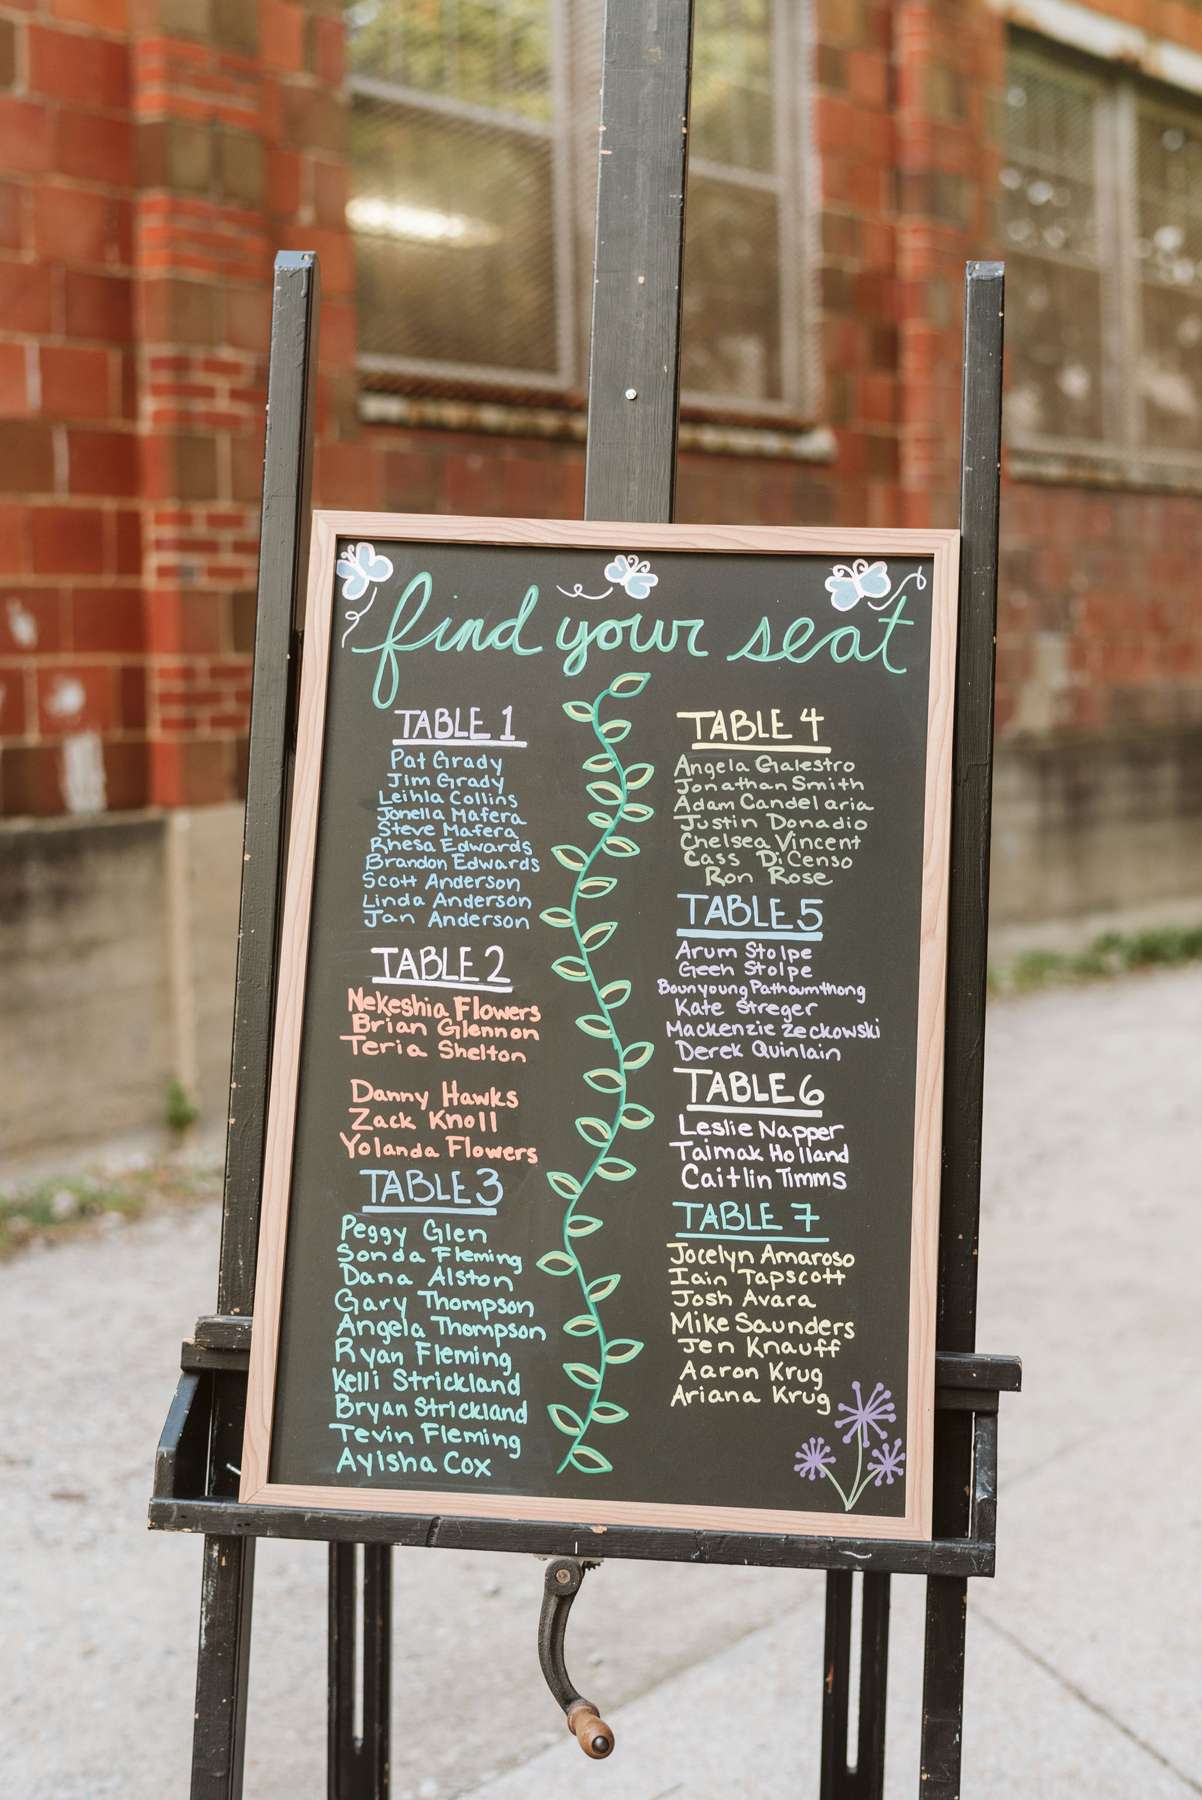 find your seat
TABLE 1
Pat Grady
Jim Grady
Leihla Collins
Jonella Mafera
Steve Mafera
Rhesa Edwards
Brandon Edwards
Scott Anderson
Linda Anderson
Jan Anderson
TABLE 2
Nekeshia Flowers
Brian Glennon
Teria Shelton
Danny Hawks
Zack Knoll
Yolanda Flowers
TABLE 3
Peggy Glen
Sonda Fleming
Dana Alston
Gary Thompson
Angela Thompson
Ryan Fleming
Kelli Strickland
Bryan Strickland
Tevin Fleming
Aylsha Cox
TABLE 4
Angela Galestro
Jonathan Smith
Adam Candelaria
Justin Donadio
Chelsea Vincent
Cass DiCenso
Ron Rose
TABLE 5
Arum Stolpe
Geeh Stolpe
Bounyoung Pathoumthong
Kate Streger
Mackenzie Zeckowski
Derek Quinlain
TABLE 6
Leslie Napper
Taimak Holland
Caitlin Timms
TABLE 7
Jocelyn Amaroso
Iain Tapscott
Josh Avara
Mike Saunders
Jen Knauff
Aaron Krug
Ariana Krug